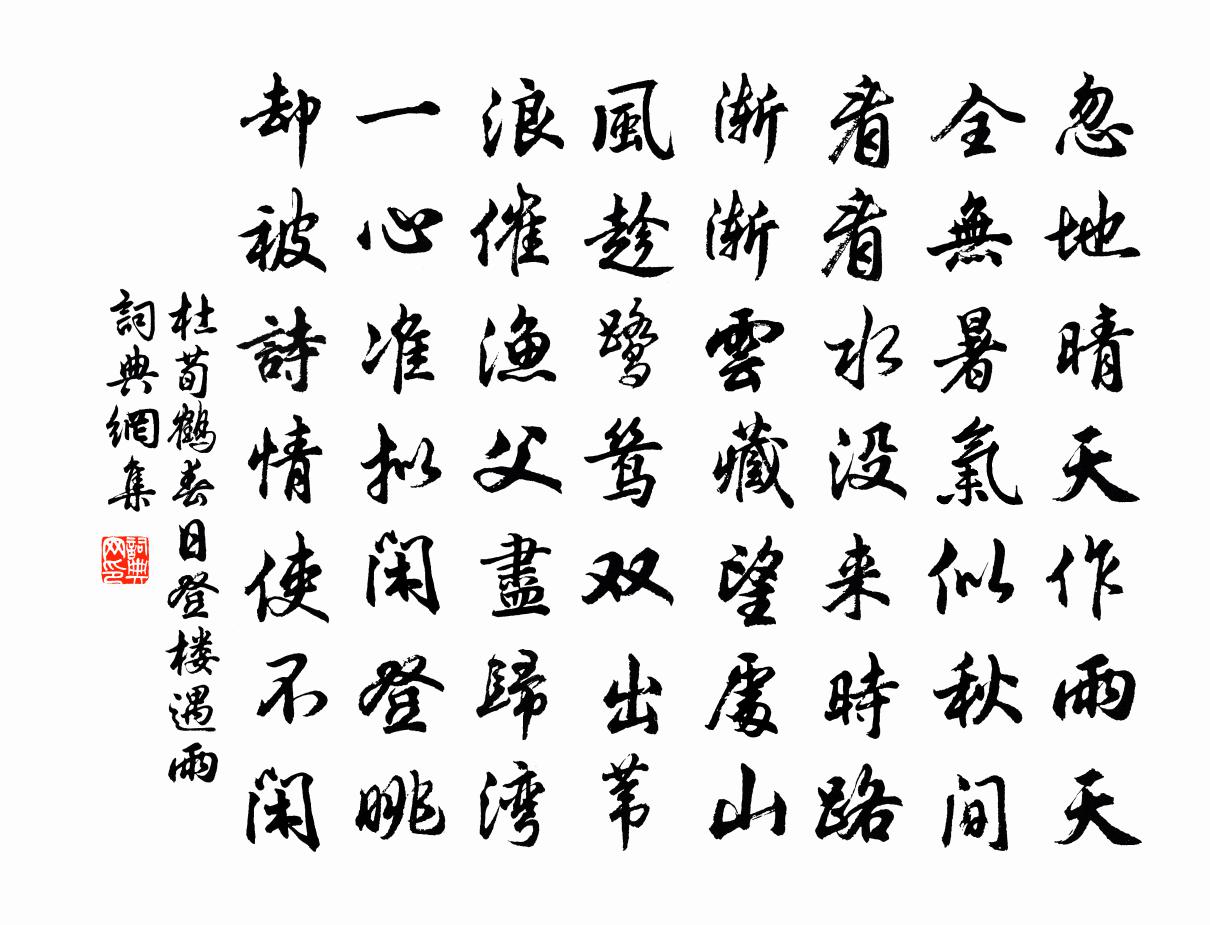 忽地晴天作雨天
全無暑氣似秋间
看看水没来時路
渐渐雲藏望處山
風趁鹭鸶双出苇
浪催渔父盡歸湾
一心准拟闲登眺
却被詩情使不闲
杜荀鶴春日登楼遇雨
詞典網集
詞典网印